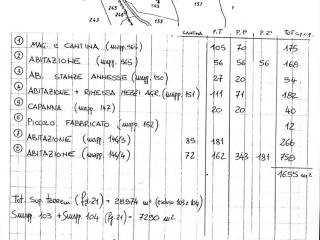 245
246
151
153
157
CANTINA P.T P.P P.2° TOT SUP.
① MAG. E CANTINA (mapp. 564) 105 70 175
② ABITAZIONE (mapp. 565) 56 56 56 168
③ AB. STANZE ANNESSE (mapp. 150) 27 20 54
④ ABITAZIONE + RIMESSA MEZZI AGR. (mapp. 151) 111 71 182
⑤ CAPANNA (mapp. 147) 20 20 40
⑥ PICCOLO FABBRICATO (mapp. 152) 12
⑦ ABITAZIONE (mapp. 146/3) 85 181 266
⑧ ABITAZIONE (mapp. 146/4) 72 162 343 181 758
1655 m²
Tot. Sup. terreni (Fg. 21) = 28974 m² (escluso 103 e 104)
Smapp. 103 + Smapp. 104 (Fg. 21) = 7290 m²